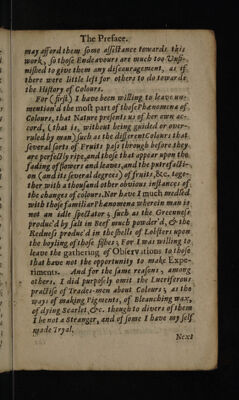 The Preface.
may afford them some assistance towards this
work, so those Endeavours are much too Unfi-
nished to give them any discouragement, as if
there were little left for others to do towards
the History of Colours.
For (first) I have been willing to leave un-
mention'd the most part of those Phænomena of
Colours, that Nature presents us of her own ac-
cord, (that is, without being guided or over-
ruled by man) such as the different Colours that
several sorts of Fruits pass through before they
are perfectly ripe, and those that appear upon the
fading of flowers and leaves, and the putrefacti-
on (and its several degrees) of fruits, &c. toge-
ther with a thousand other obvious instances of
the changes of colours. Nor have I much medled
with those familiar Phænomena wherein man is
not an idle spectator ; such as the Greenness
produc'd by salt in Beef much powder'd, & the
Redness produc'd in the shells of Lobsters upon
the boyling of those fishes ; For I was willing to
leave the gathering of Observations to those
that have not the opportunity to make Expe-
riments. And for the same reasons, among
others, I did purposely omit the Lucriferous
practise of Trades-men about Colours ; as the
ways of making Pigments, of Bleanching wax,
of dying Scarlet, &c. though to divers of them
I be not a Stranger, and of some I have my self
made Tryal.
Next